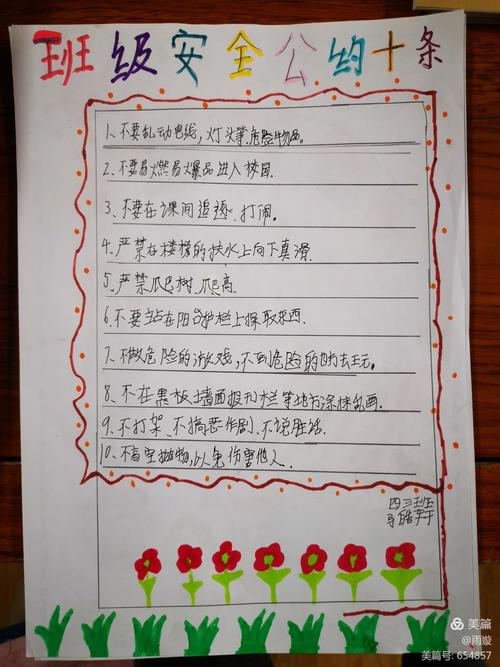 班级安全公约十条
1、不要乱动电线，灯头等危险物品。
2、不要易燃易爆品进入校园.
3、不要在课间追逐.打闹.
4、严禁在楼梯的扶水上向下真滑.
5、严禁爬树.爬高.
6、不要站在阳台护栏上探取东西.
7、不做危险的游戏，不到危险的地方去玩.
8、不在黑板、墙面报刊栏等地方涂抹乱画.
9、不打架、不搞恶作剧、不说脏话.
10、不高空抛物，以免伤害他人.
四三班
美篇
@雨漩
美篇号: 654857